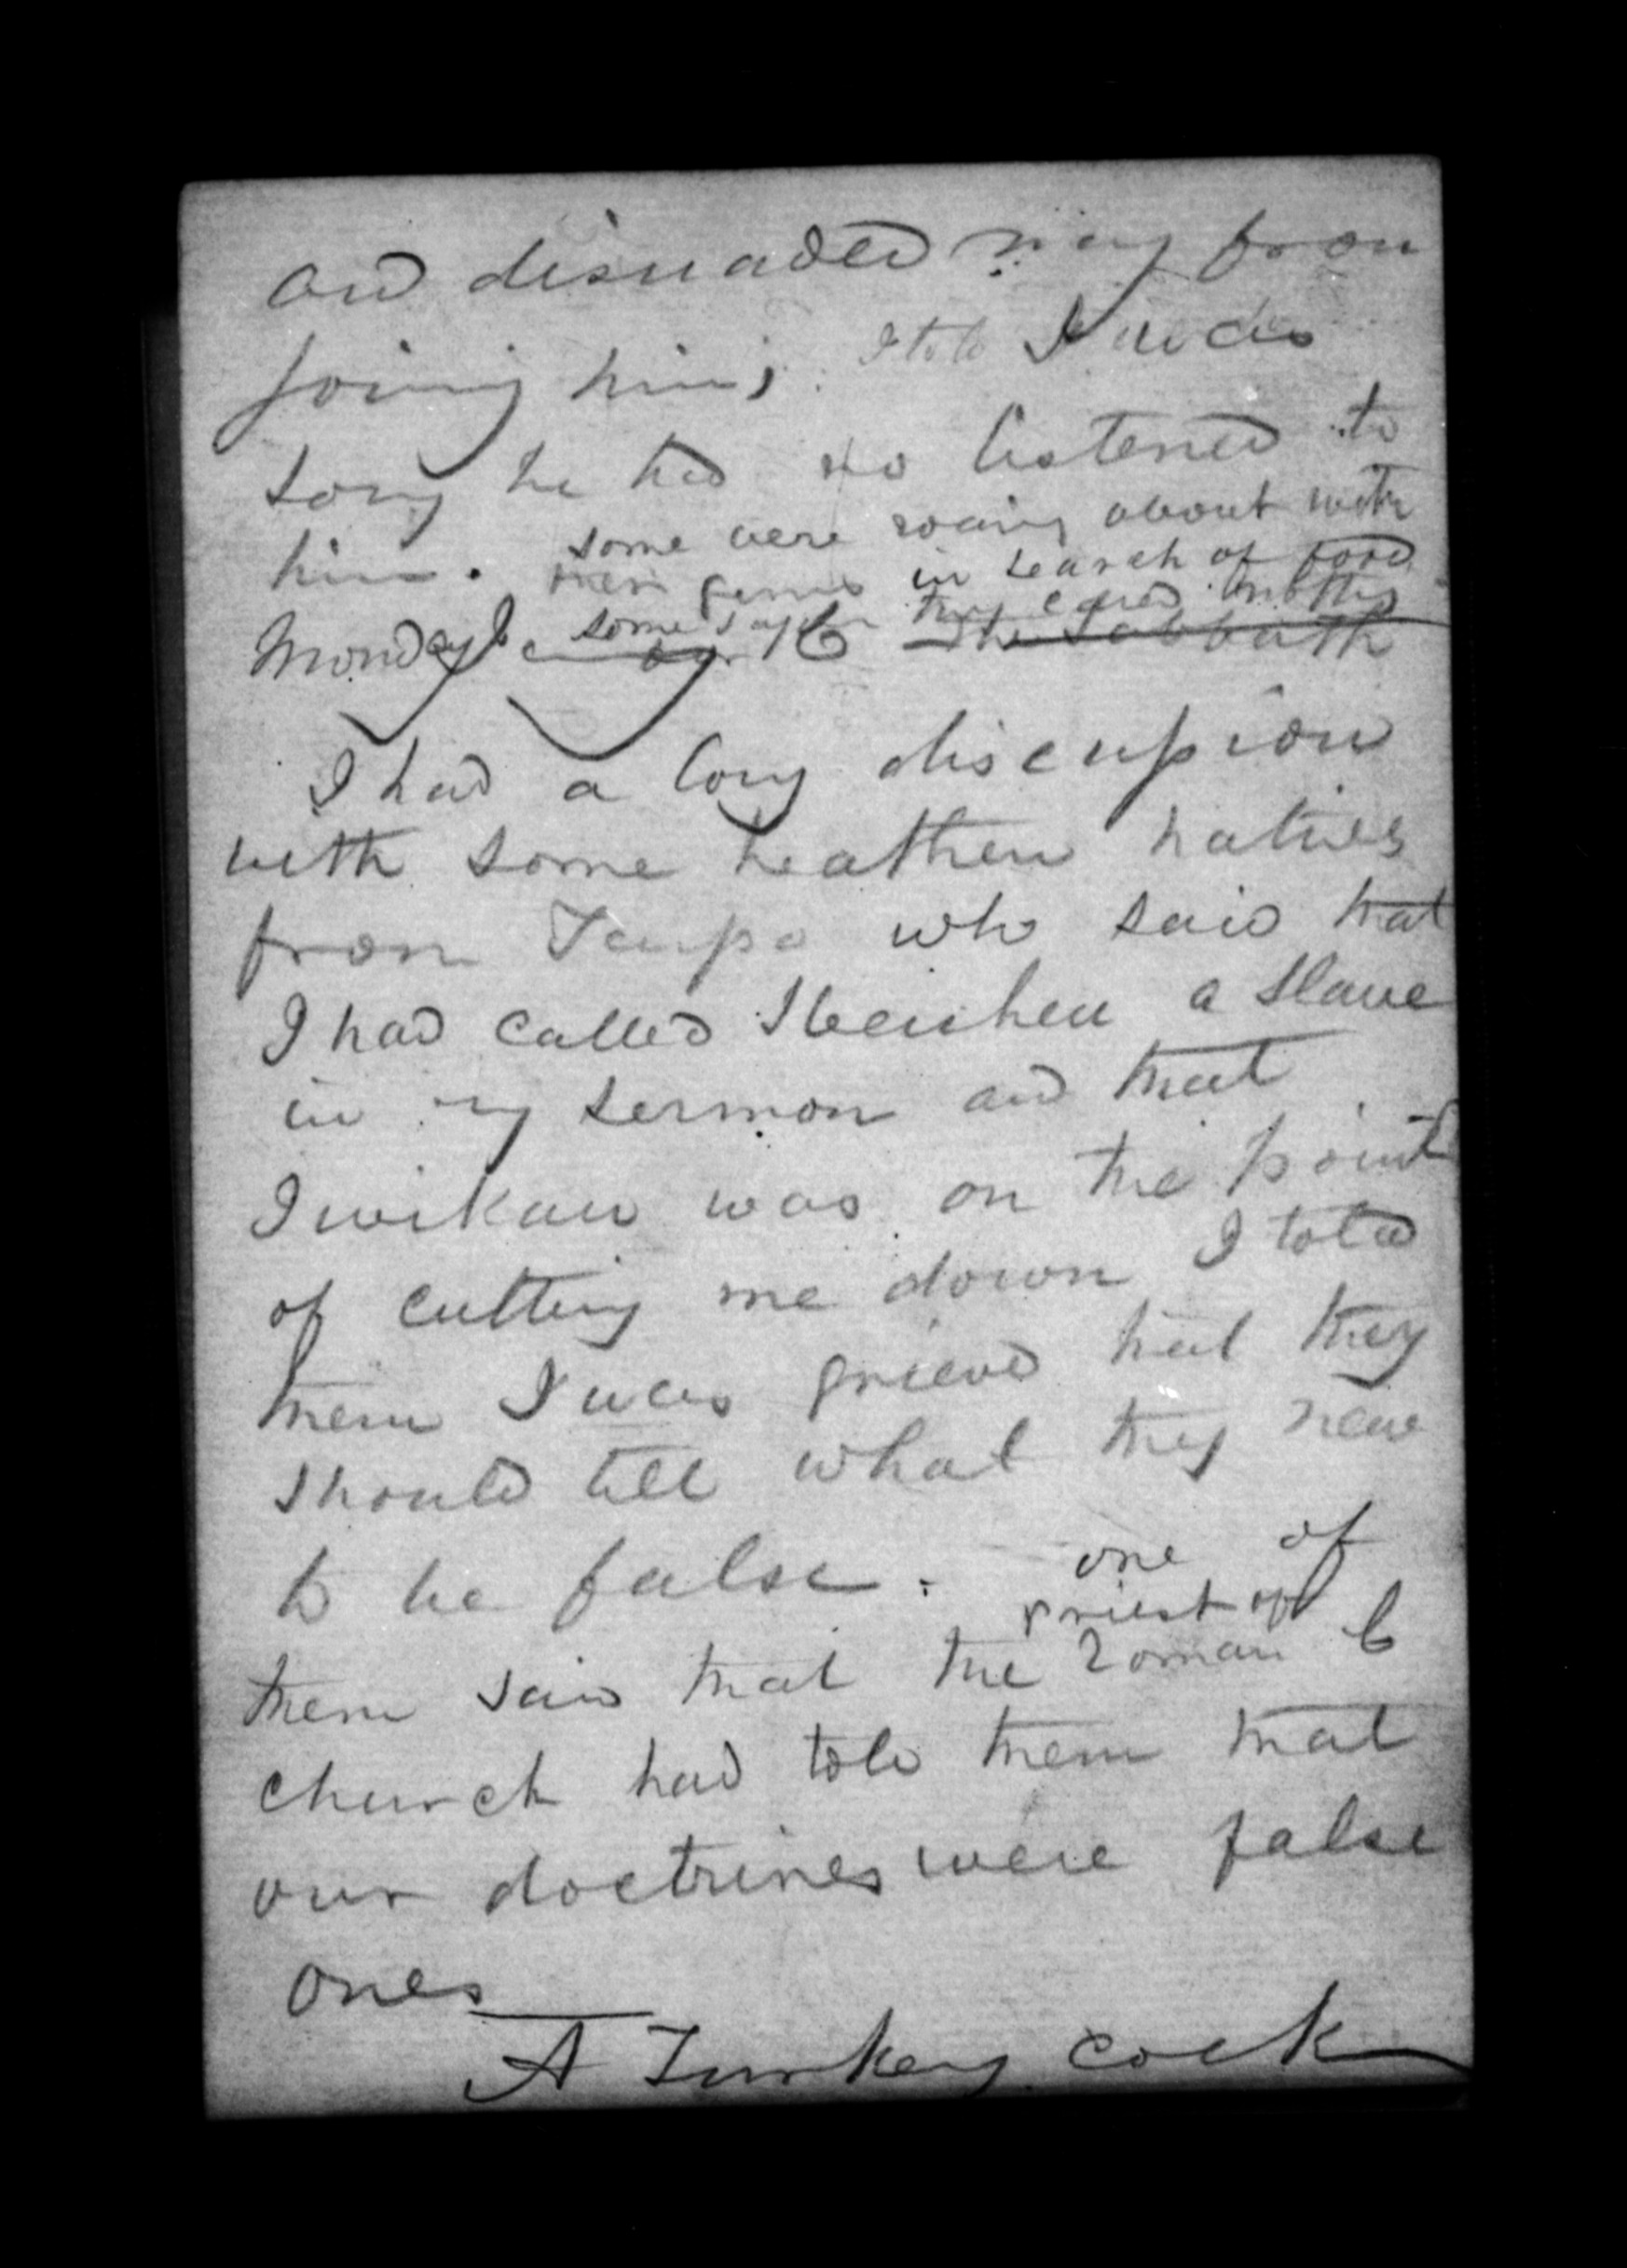 and disuaded many from
joining him; I told I was
sory he had so listened to
him. some were roaming about with
their guns in search of food
some said they cared nothing
Monday 16 The Sabbath
I had a long discussion
with some heathen natives
from Taupo who said that
I had called Heuheu a slave
in my sermon and that
Iwikau was on the point
of cutting me down I told
them I was grieved that they
should tell what they new
to be false. one of
priest of
them said that the Roman C
church had told them that
our doctrines were false
ones
A Turkey cock